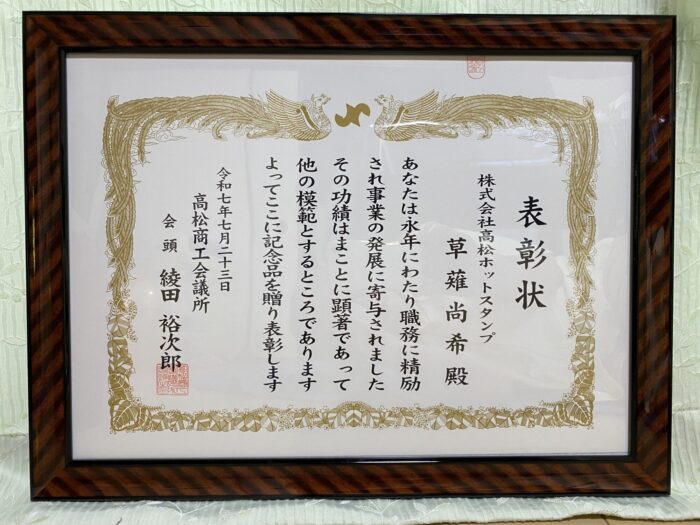 表彰状
株式会社高松ホットスタンプ
草薙尚希殿
あなたは永年にわたり職務に精励
され事業の発展に寄与されました
その功績はまことに顕著であって
他の模範とするところであります
よってここに記念品を贈り表彰します
令和七年七月二十三日
高松商工会議所
会頭 綾田裕次郎